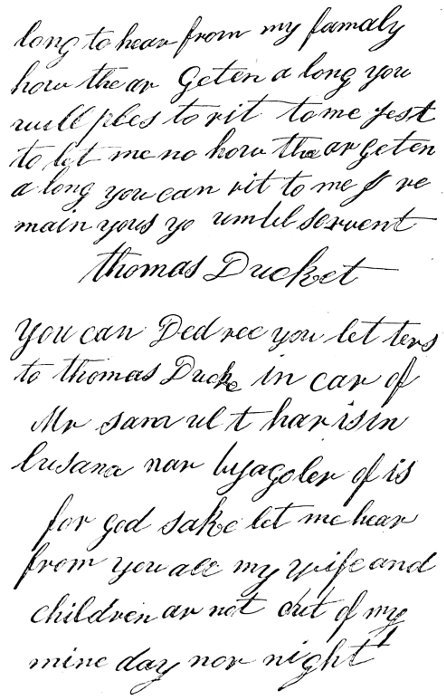 long to hear from my famaly
how the ar geten a long you
will ples to rit to me jest
to let me no how the ar geten
a long you can rit to me I re
main yours yo umbel servent
thomas Ducket
you can Ded rec you let ters
to thomas Ducke in car of
Mr samuel t harisin
lusana nar byagoler of is
for god sake let me hear
from you all my wife and
children ar not out of my
mine day nor night